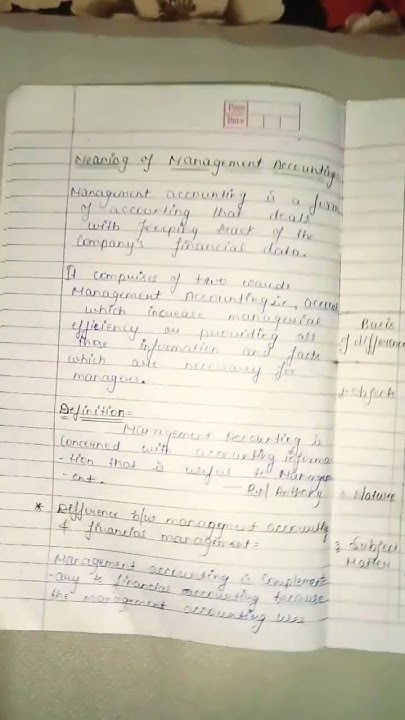 Page
Date
Meaning of Management Accounting
Management accounting is a form
of accounting that deals
with keeping track of the
company's financial data.
It comprises of two words
Management Accounting i.e, accoun
which increase managerial
efficiency on providing all
those information and facts
which are necessary for
managers.
Definition=
Management Accounting is
concerned with accounting informa
-tion that is useful to Manage
-ent.
Anthony
* Difference b/w management accounting
& financial management=
Management accounting is complement
-ary to financial accounting because
the management accounting use
Basis
of difference
1. objects
2. Nature
3. Subject
Matter